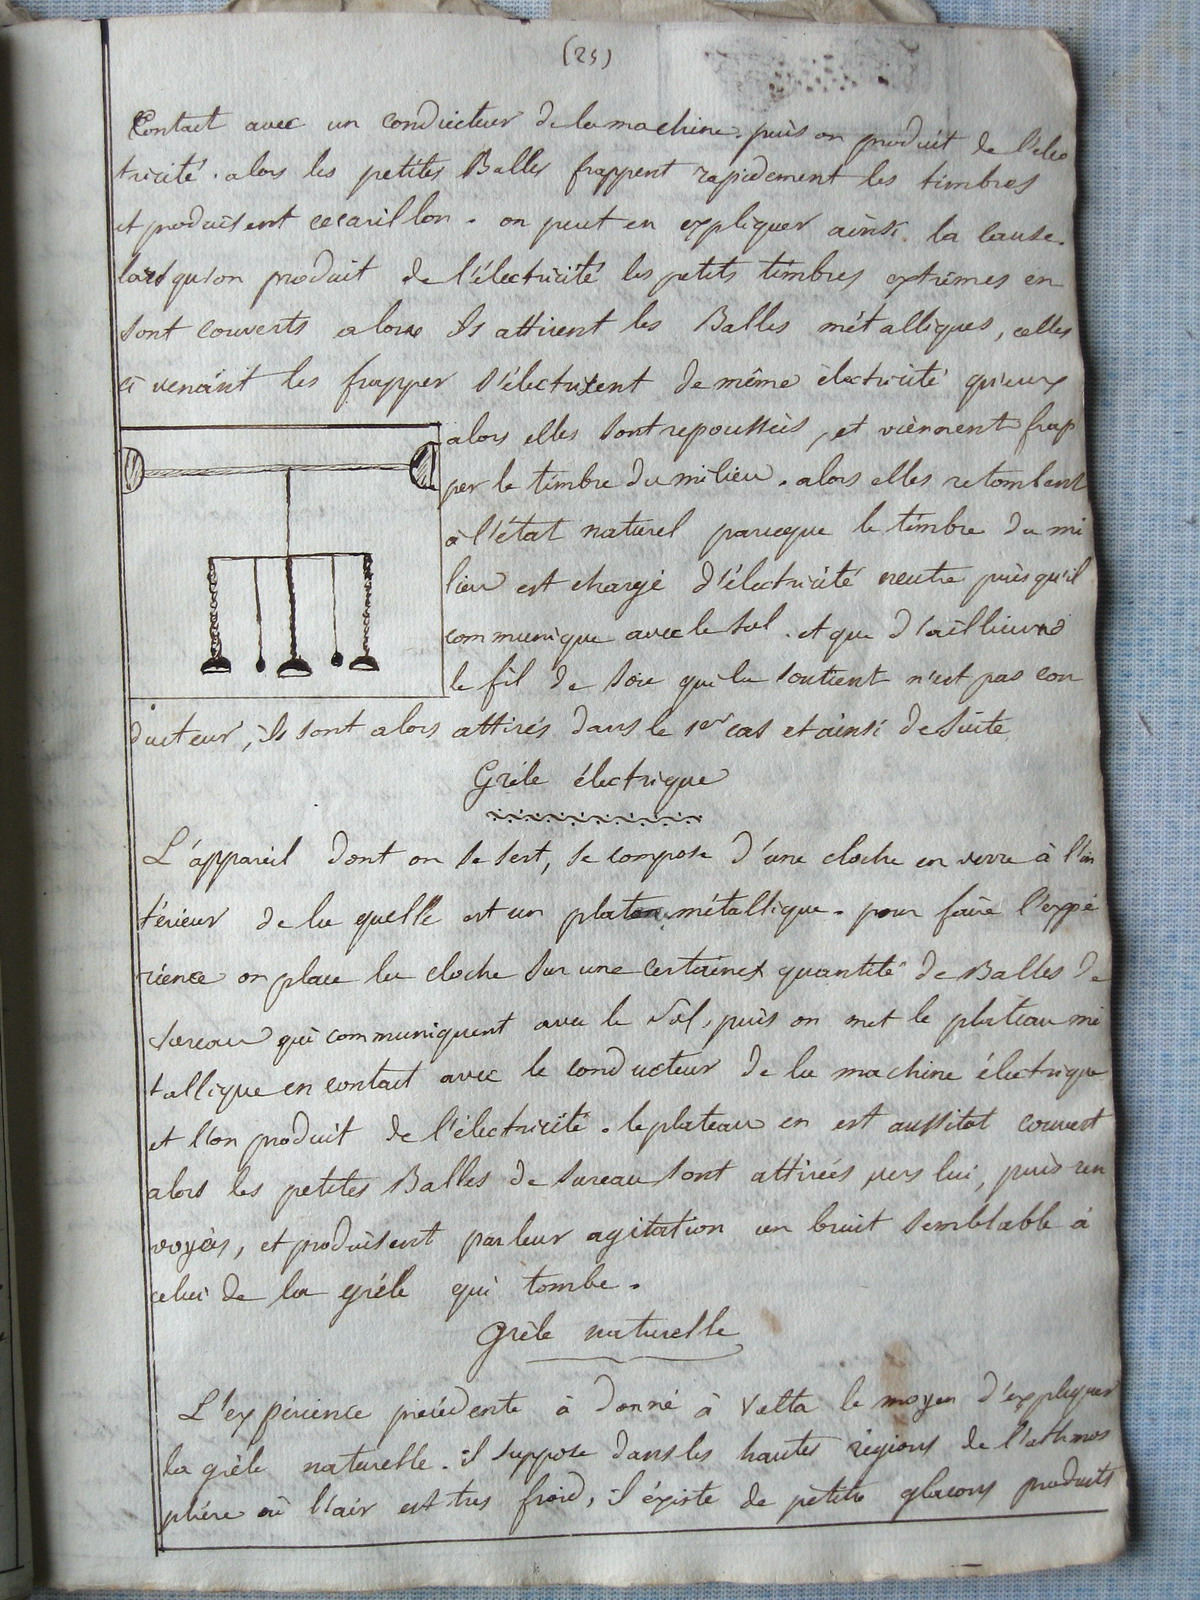 (25)
Contact avec un conducteur de la machine. puis on produit de l'élec
tricité. alors les petites Balles frappent rapidement les timbres
et produisent ce carillon. on peut en expliquer ainsi la cause.
lorsqu'on produit de l'électricité les petits timbres extrêmes en
sont couverts alors ils attirent les Balles métalliques, celles
ci venant les frapper s'électrisent de même électricité qu'eux
alors elles sont repoussées, et viennent frap
per le timbre du milieu. alors elles retombent
à l'état naturel parceque le timbre du mi
lieu est chargé d'électricité neutre puisqu'il
communique avec le sol. et que d'ailleurs
le fil de soie qui la soutient n'est pas con
ducteur, ils sont alors attirés dans le 1er cas et ainsi de suite
Grêle électrique
L'appareil dont on se sert, se compose d'une cloche en verre à l'in
térieur de la quelle est un plateau métallique. pour faire l'expé
rience on place la cloche sur une certaine quantité de Balles de
sureau qui communiquent avec le sol, puis on met le plateau mé
tallique en contact avec le conducteur de la machine électrique
et l'on produit de l'électricité. le plateau en est aussitot couvert
alors les petites Balles de sureau sont attirées vers lui, puis ren
voyées, et produisent par leur agitation un bruit semblable à
celui de la grêle qui tombe.
Grêle naturelle
L'expérience précédente à donné à Volta le moyen d'expliquer
la grêle naturelle. il suppose dans les hautes régions de l'athmos
phére où l'air est tres froid, il éxiste de petits glacons produits